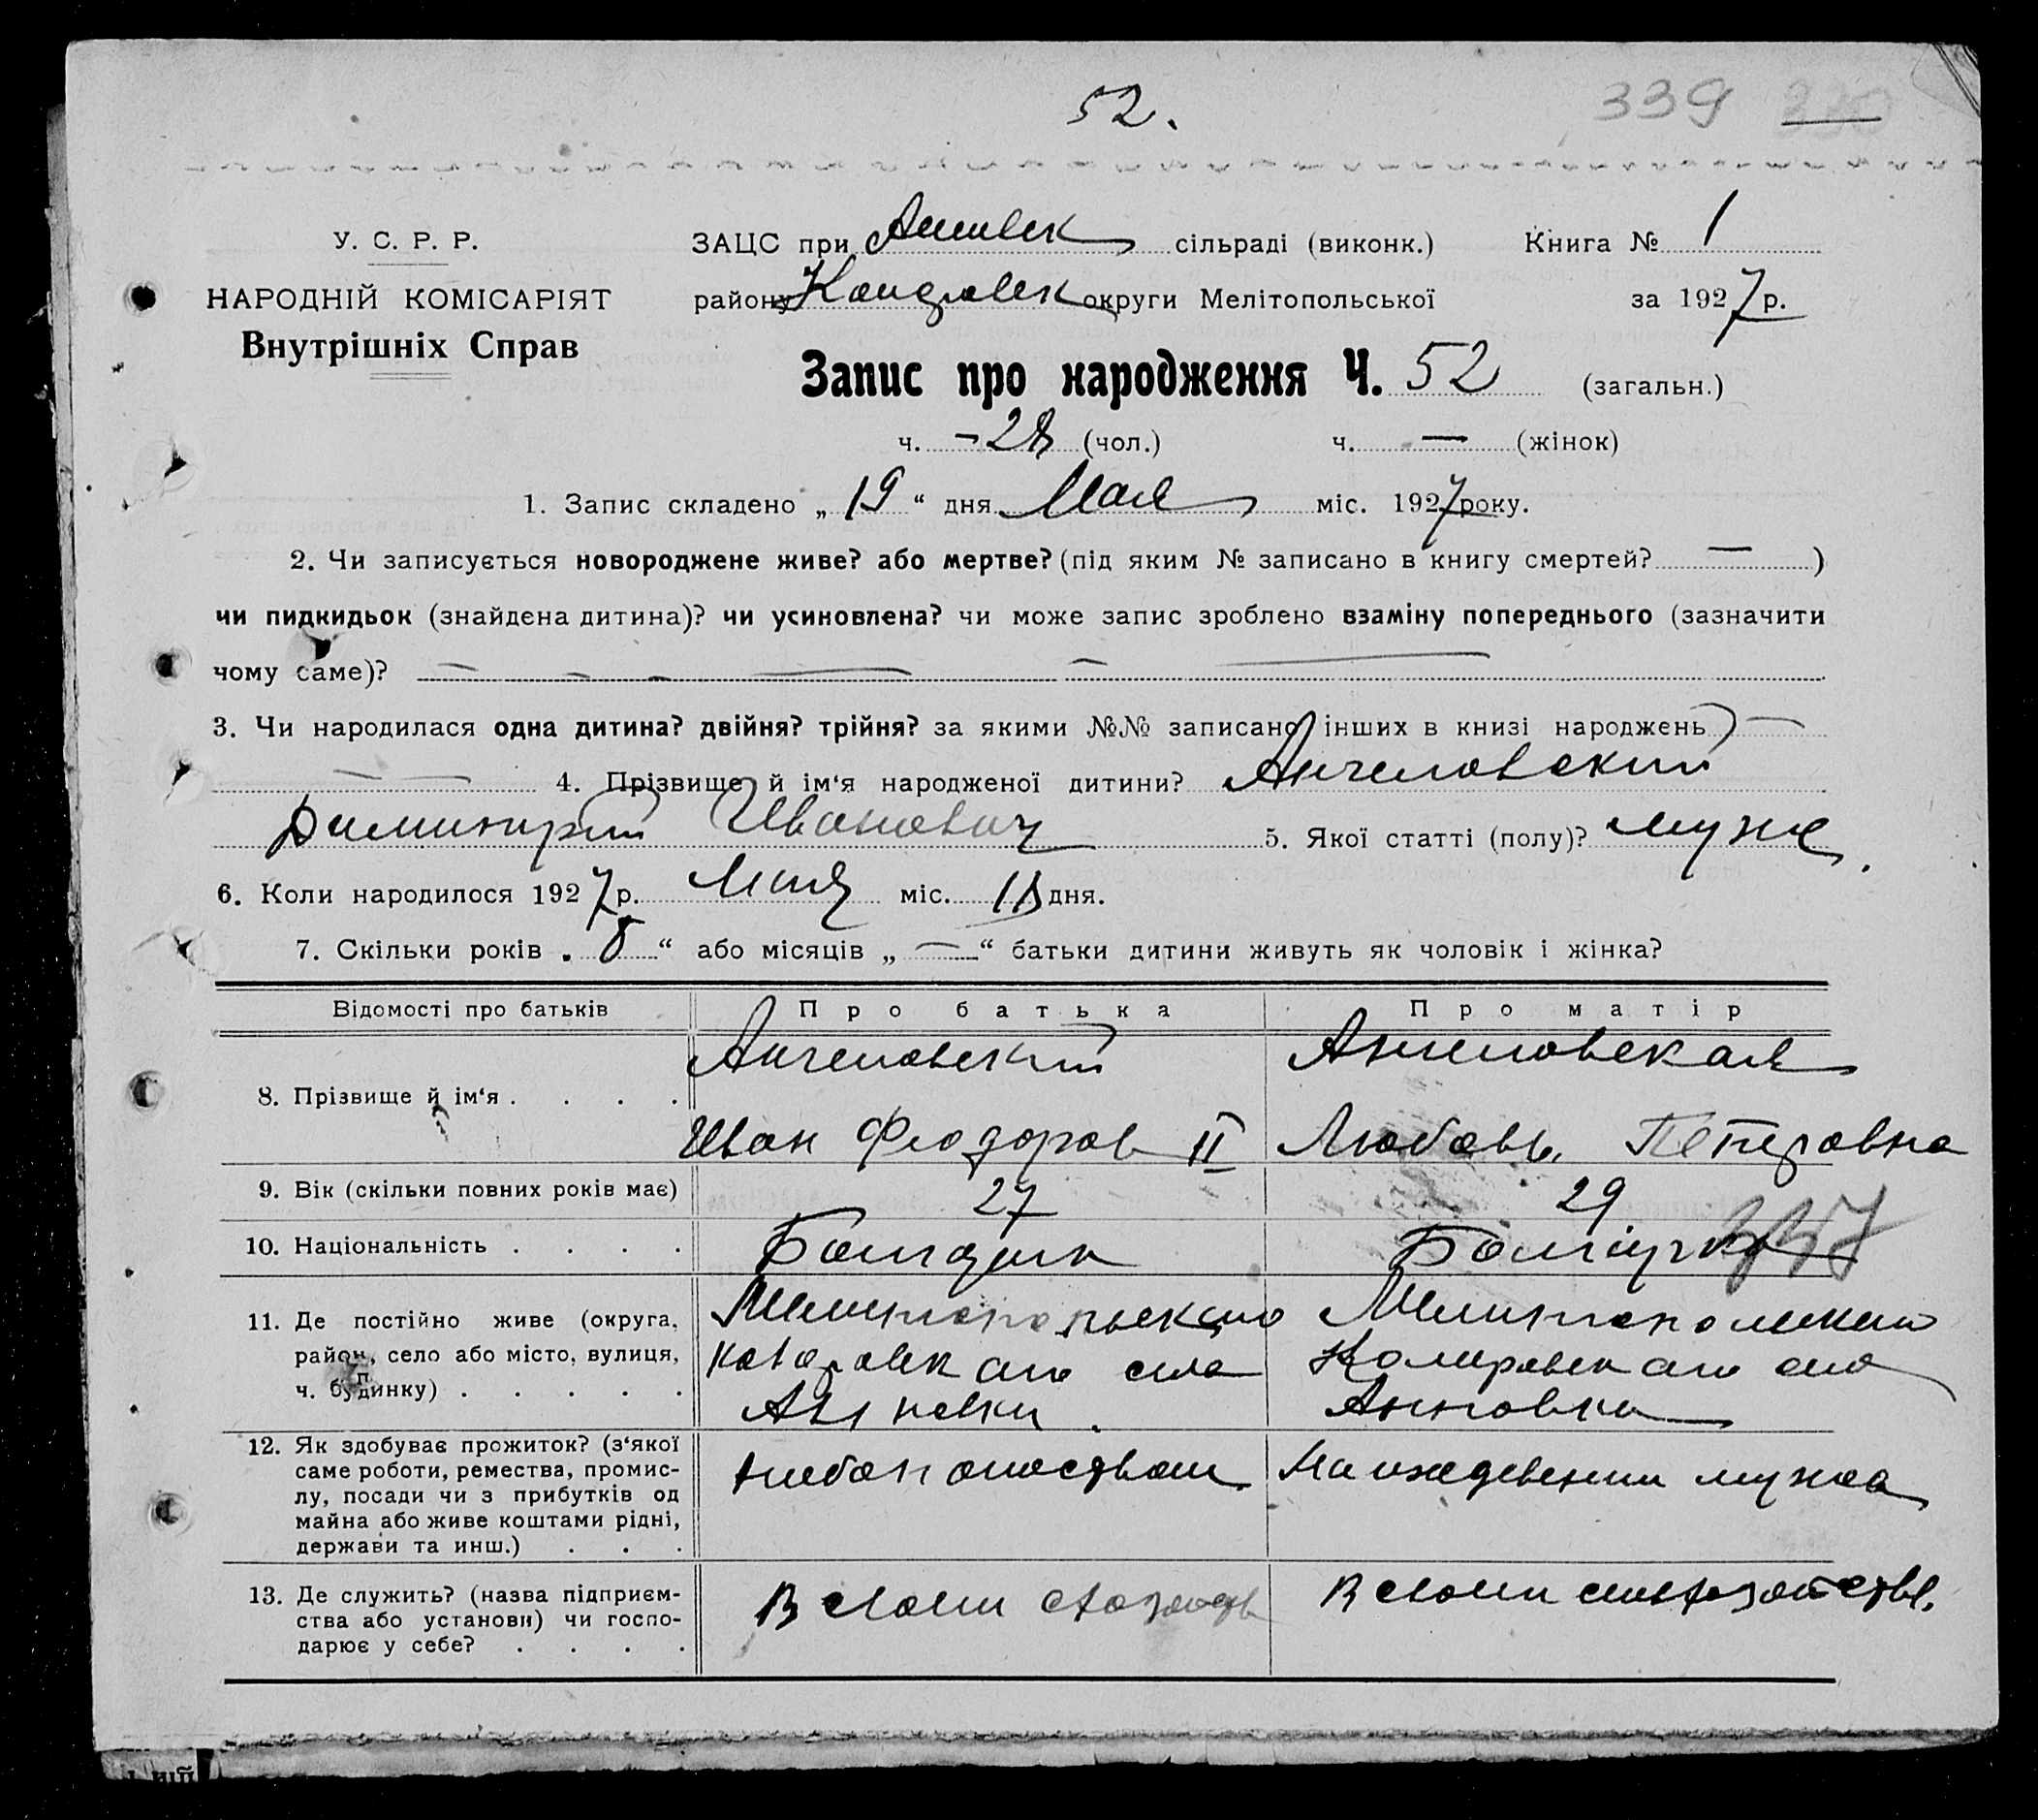 52.
339
У. С. Р. Р.
ЗАЦС при сільраді (виконк.) Книга № 1
НАРОДНІЙ КОМІСАРІЯТ
району округи Мелітопольської за 1927 р.
Внутрішніх Справ
Запис про народження Ч. 52 (загальн.)
ч. – 28 (чол.) ч. — (жінок)
1. Запис складено „ 19 “ дня Мая міс. 1927 року.
2. Чи записується новороджене живе? або мертве? (під яким № записано в книгу смертей? — )
чи пидкидьок (знайдена дитина)? чи усиновлена? чи може запис зроблено взаміну попереднього (зазначити
чому саме)? — — — — — —
3. Чи народилася одна дитина? двійня? трійня? за якими №№ записано інших в книзі народжень —
— — 4. Прізвище й ім‘я народженої дитини? Ангеловский
Димитрий Иванович 5. Якої статті (полу)? муж.
6. Коли народилося 1927 р. Мая міс. дня.
7. Скільки років „ 8 “ або місяців „ — “ батьки дитини живуть як чоловік і жінка?
Відомості про батьків Про батька Про матір
8. Прізвище й ім‘я . . . .
Ангеловский
Иван Феодоров II
Ангеловская
Любовь Петеровна
9. Вік (скільки повних років має) 27 29
10. Національність . . . . Болгарин Болгарка
337
11. Де постійно живе (округа,
район, село або місто, вулиця,
ч. будинку) . . . . .
Мелитопольскаго
села
Анновки.
Мелитопольскаго
село
Анновка
12. Як здобуває прожиток? (з‘якої
саме роботи, ремества, промис-
лу, посади чи з прибутків од
майна або живе коштами рідні,
держави та инш.) . . .
Хлебопашеством
На иждевении мужа
13. Де служить? (назва підприєм-
ства або установи) чи госпо-
дарює у себе? . . . .
В своем
В своем